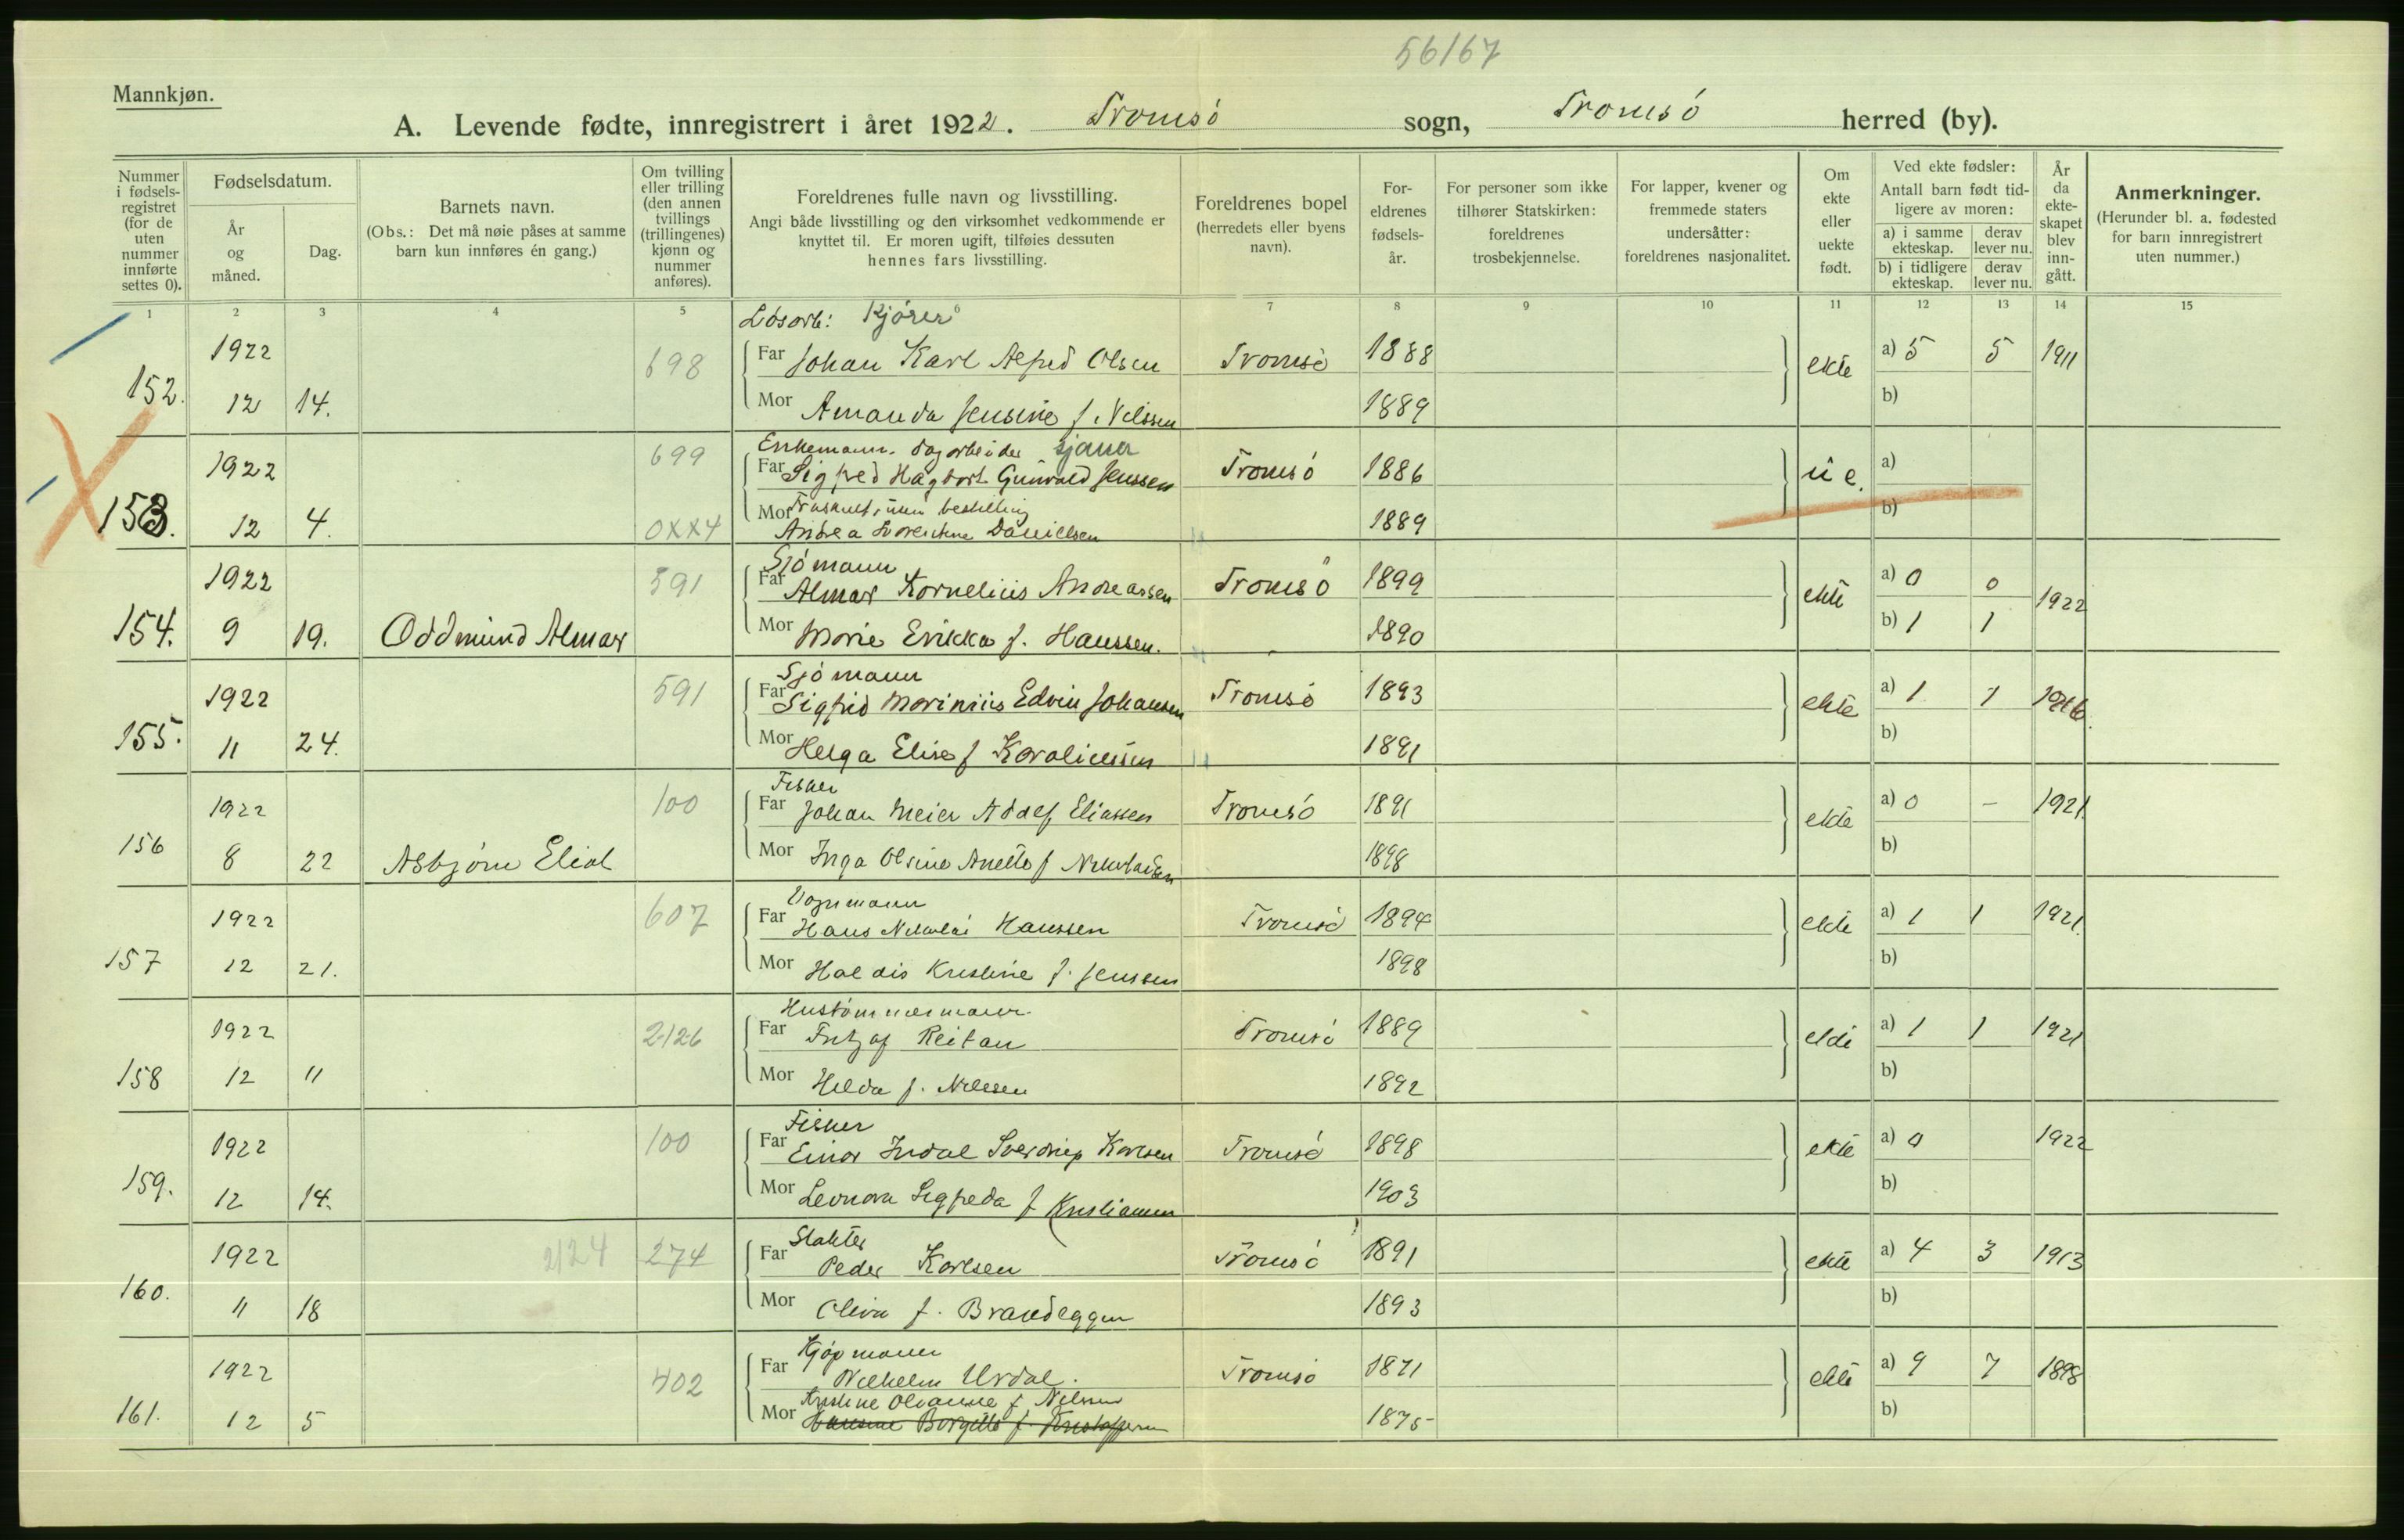 56/67
Mannkjøn.
A. Levende fødte, innregistrert i året 1922. Tromsö sogn, Tromsö herred (by).
Nummer i fødselsregistret (for de uten nummer innførte settes 0).
Fødselsdatum.
År og måned.
Dag.
Barnets navn.
(Obs.: Det må nøie påses at samme barn kun innføres én gang.)
Om tvilling eller trilling (den annen tvillings (trillingenes) kjønn og nummer anføres).
Foreldrenes fulle navn og livsstilling.
Angi både livsstilling og den virksomhet vedkommende er knyttet til. Er moren ugift, tilføies dessuten hennes fars livsstilling.
Foreldrenes bopel (herredets eller byens navn).
Foreldrenes fødselsår.
For personer som ikke tilhører Statskirken: foreldrenes trosbekjennelse.
For lapper, kvener og fremmede staters undersåtter: foreldrenes nasjonalitet.
Om ekte eller uekte født.
Ved ekte fødsler: Antall barn født tidligere av moren:
a) i samme ekteskap. derav lever nu.
b) i tidligere ekteskap. derav lever nu.
År da ekteskapet blev inngått.
Anmerkninger.
(Herunder bl. a. fødested for barn innregistrert uten nummer.)
1 2 3 4 5 7 8 9 10 11 12 13 14 15
Løsarb: Kjører
1922 698 Far Johan Karl Alfred Olsen Tromsö 1888 ekte a) 5 5 1911
152. 12 14. Mor Amanda Jensine f. Nilssen 1889 b)
Enkemann. dagarbeider sjauer
1922 699 Far Sigfred Hagbart Gunvald Jenssen Tromsö 1886 u e. a)
153. 12 4. 0XX4 Mor Andrea Danielsen 1889 b)
Sjömann
1922 591 Far Almar Kornelius Andreassen Tromsö 1899 ekte a) 0 0 1922
154. 9 19. Oddmund Almar Mor Marie Erikka f. Hanssen. 1890 b) 1 1
Sjömann
1922 591 Far Sigfrid Marinius Edvin Johansen Tromsö 1893 ekte a) 1 1 1916
155. 11 24. Mor Helga Elise f Karoliussen 1891 b)
Fisker
1922 100 Far Johan Meier Adolf Eliassen Tromsö 1891 ekte a) 0 – 1921
156 8 22 Asbjörn Eliot Mor Inga Olsine Anette f Nikolaisen 1898 b)
Vognmann
1922 607 Far Hans Nikolai Hanssen Tromsö 1894 ekte a) 1 1 1921
157 12 21. Mor Haldis Kristine f. Jenssen 1898 b)
Hustömmermann
1922 2126 Far Fritjof Reitan Tromsö 1889 ekte a) 1 1 1921
158 12 11 Mor Hilda f. Nilssen 1892 b)
Fisker
1922 100 Far Einar Indal Sverdrup Karlsen Tromsö 1898 ekte a) 0 1922
159. 12 14. Mor Leonora Sigfreda f Kristiansen 1903 b)
Slakter
1922 2124 274 Far Peder Karlsen Tromsö 1891 ekte a) 4 3 1913
160. 11 18 Mor Oliva f. Brandeggen 1893 b)
Kjöpmann
1922 402 Far Vilhelm Urdal. Tromsö 1871 ekte a) 9 7 1898
Kristine Olianne f. Nilsen
161. 12 5 Mor Hansine Borgitte f. Kristoffersen 1875 b)